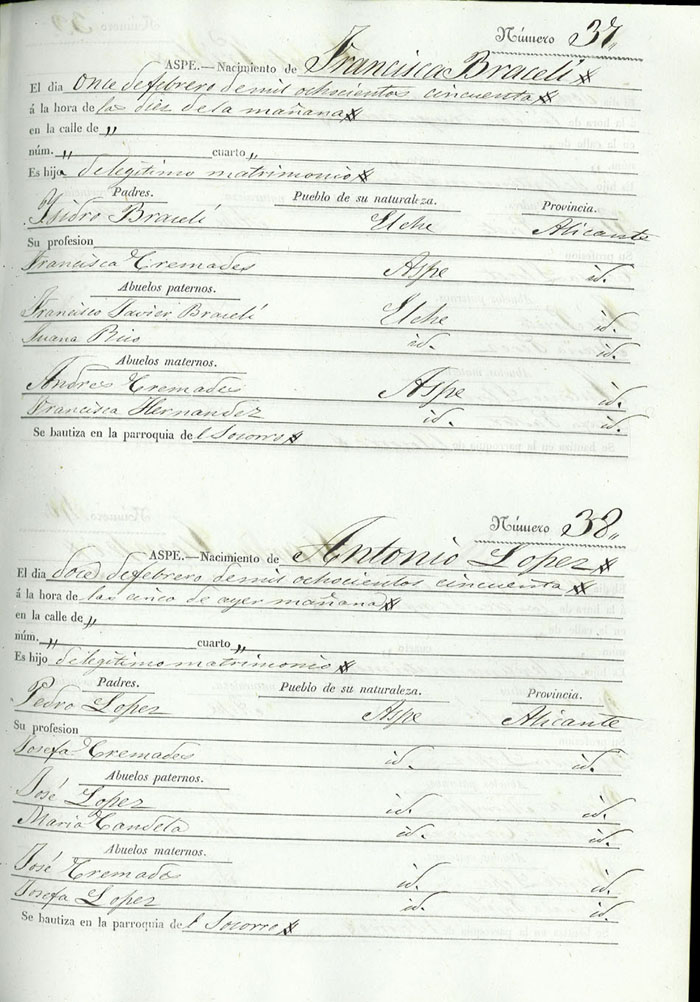 Número 37„
ASPE.—Nacimiento de Francisca Bracelí
El dia once de febrero de mil ochocientos cincuenta
á la hora de las diez de la mañana
en la calle de „
núm. „ cuarto „
Es hija de legítimo matrimonio
Padres. Pueblo de su naturaleza. Provincia.
Ysidro Bracelí Elche Alicante
Su profesion
Francisca Cremades Aspe id.
Abuelos paternos.
Francisco Javier Bracelí Elche id.
Juana Rico id. id.
Abuelos maternos.
Andres Cremades Aspe id.
Francisca Hernandez id. id.
Se bautiza en la parroquia del Socorro
Número 38„
ASPE.—Nacimiento de Antonio Lopez
El dia doce de febrero de mil ochocientos cincuenta
á la hora de las cinco de ayer mañana
en la calle de „
núm. „ cuarto „
Es hijo de legítimo matrimonio
Padres. Pueblo de su naturaleza. Provincia.
Pedro Lopez Aspe Alicante
Su profesion
Josefa Cremades id. id.
Abuelos paternos.
José Lopez id. id.
Maria Candela id. id.
Abuelos maternos.
José Cremades id. id.
Josefa Lopez id. id.
Se bautiza en la parroquia del Socorro